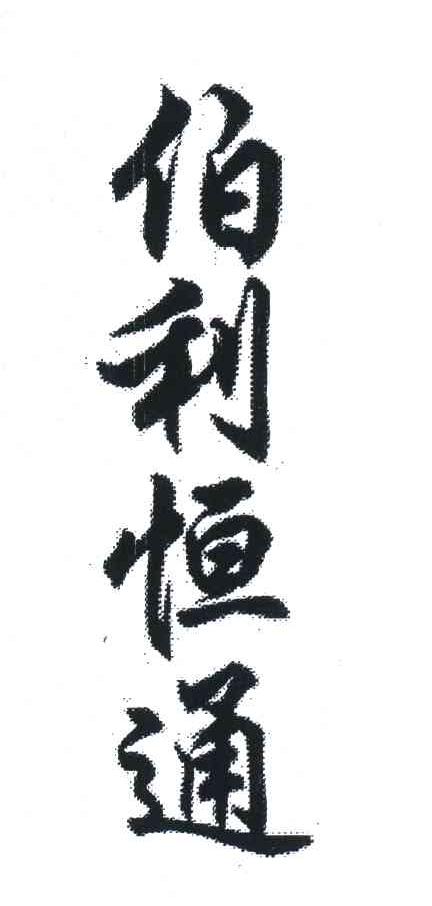 伯利恒通